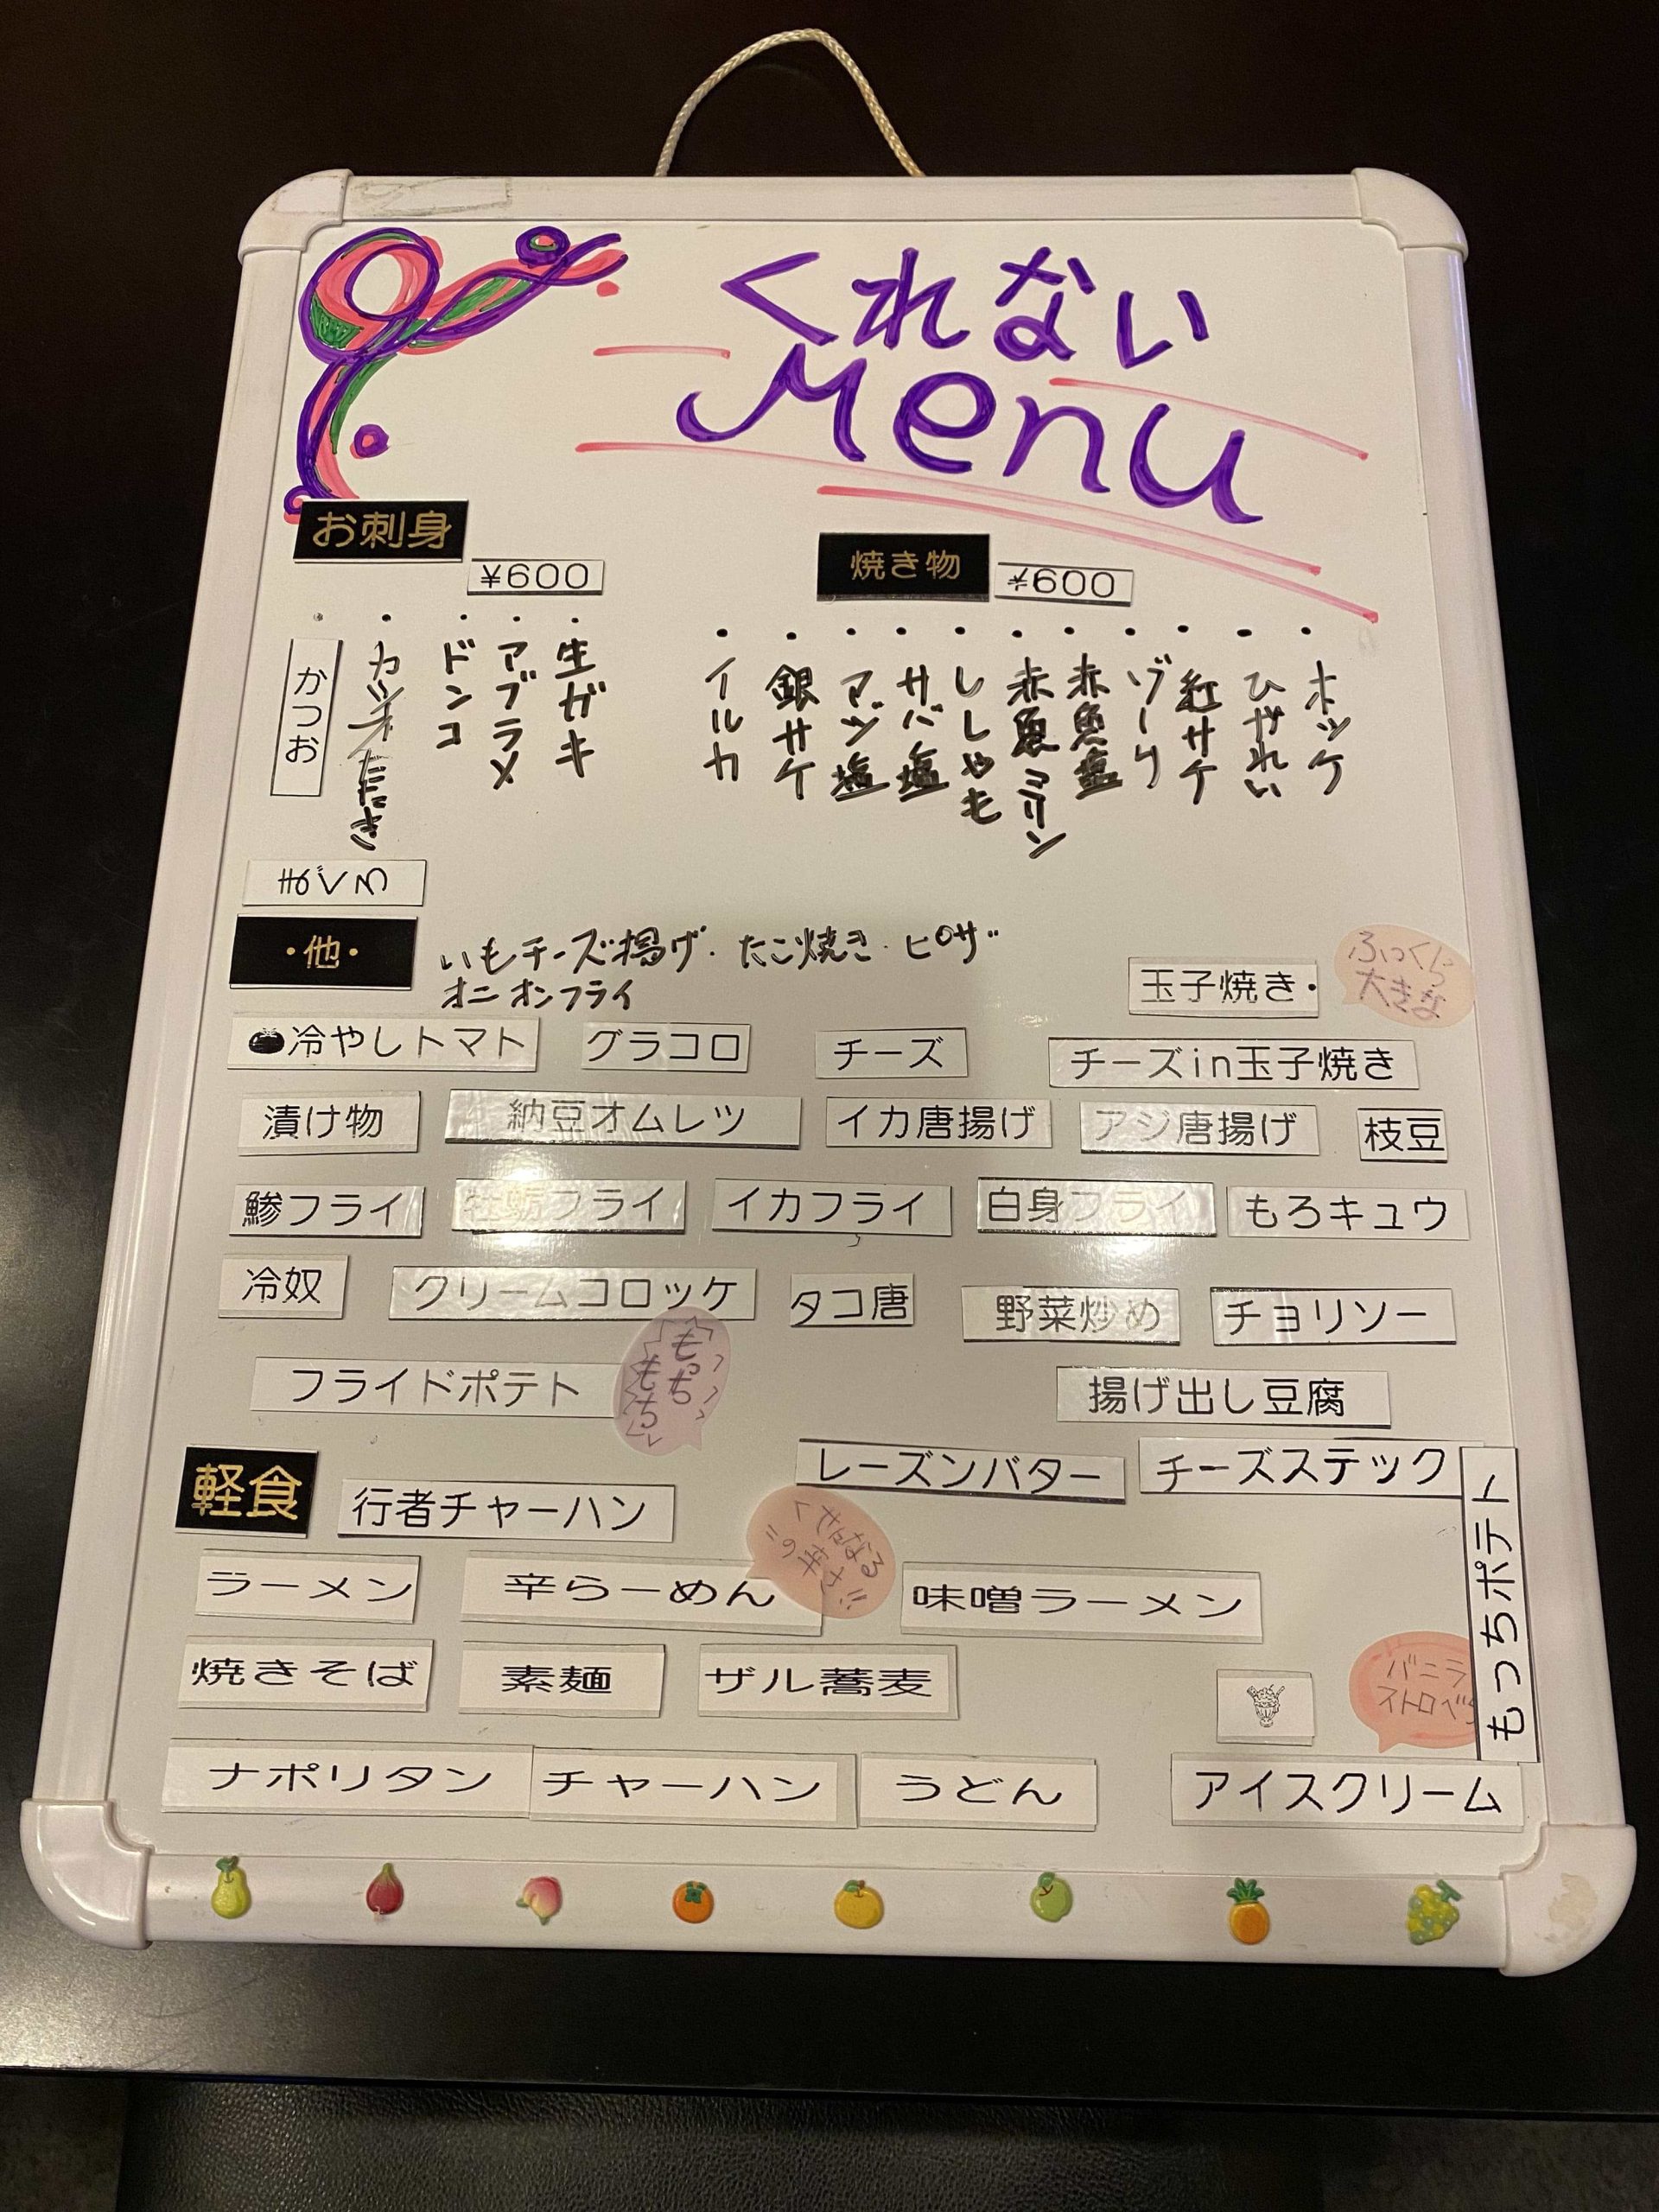 くれない
Menu
お刺身
¥600
かつお
カツオたたき
ドンコ
アブラメ
生ガキ
まぐろ
焼き物
¥600
イルカ
銀サケ
サバ塩
ししゃも
赤魚ミリン
赤魚塩
紅サケ
ホッケ
・他・
いもチーズ揚げ・たこ焼き・ピザ
オニオンフライ
玉子焼き・
ふっくら
大きな
冷やしトマト
グラコロ
チーズ
チーズin玉子焼き
漬け物
納豆オムレツ
イカ唐揚げ
アジ唐揚げ
枝豆
鯵フライ
牡蛎フライ
イカフライ
白身フライ
もろキュウ
冷奴
クリームコロッケ
タコ唐
野菜炒め
チョリソー
フライドポテト
もっち
もち
揚げ出し豆腐
レーズンバター
チーズステック
もっちポテト
軽食
行者チャーハン
ラーメン
辛らーめん
くせになる
味噌ラーメン
焼きそば
素麺
ザル蕎麦
バニラ
ナポリタン
チャーハン
うどん
アイスクリーム